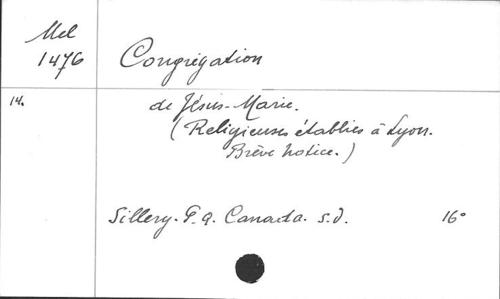 Mel
1476
Congrégation
14.
de Jésus-Marie.
(Religieuses établies à Lyon.
Brève notice.)
Sillery. P.Q. Canada. s.d. 16°